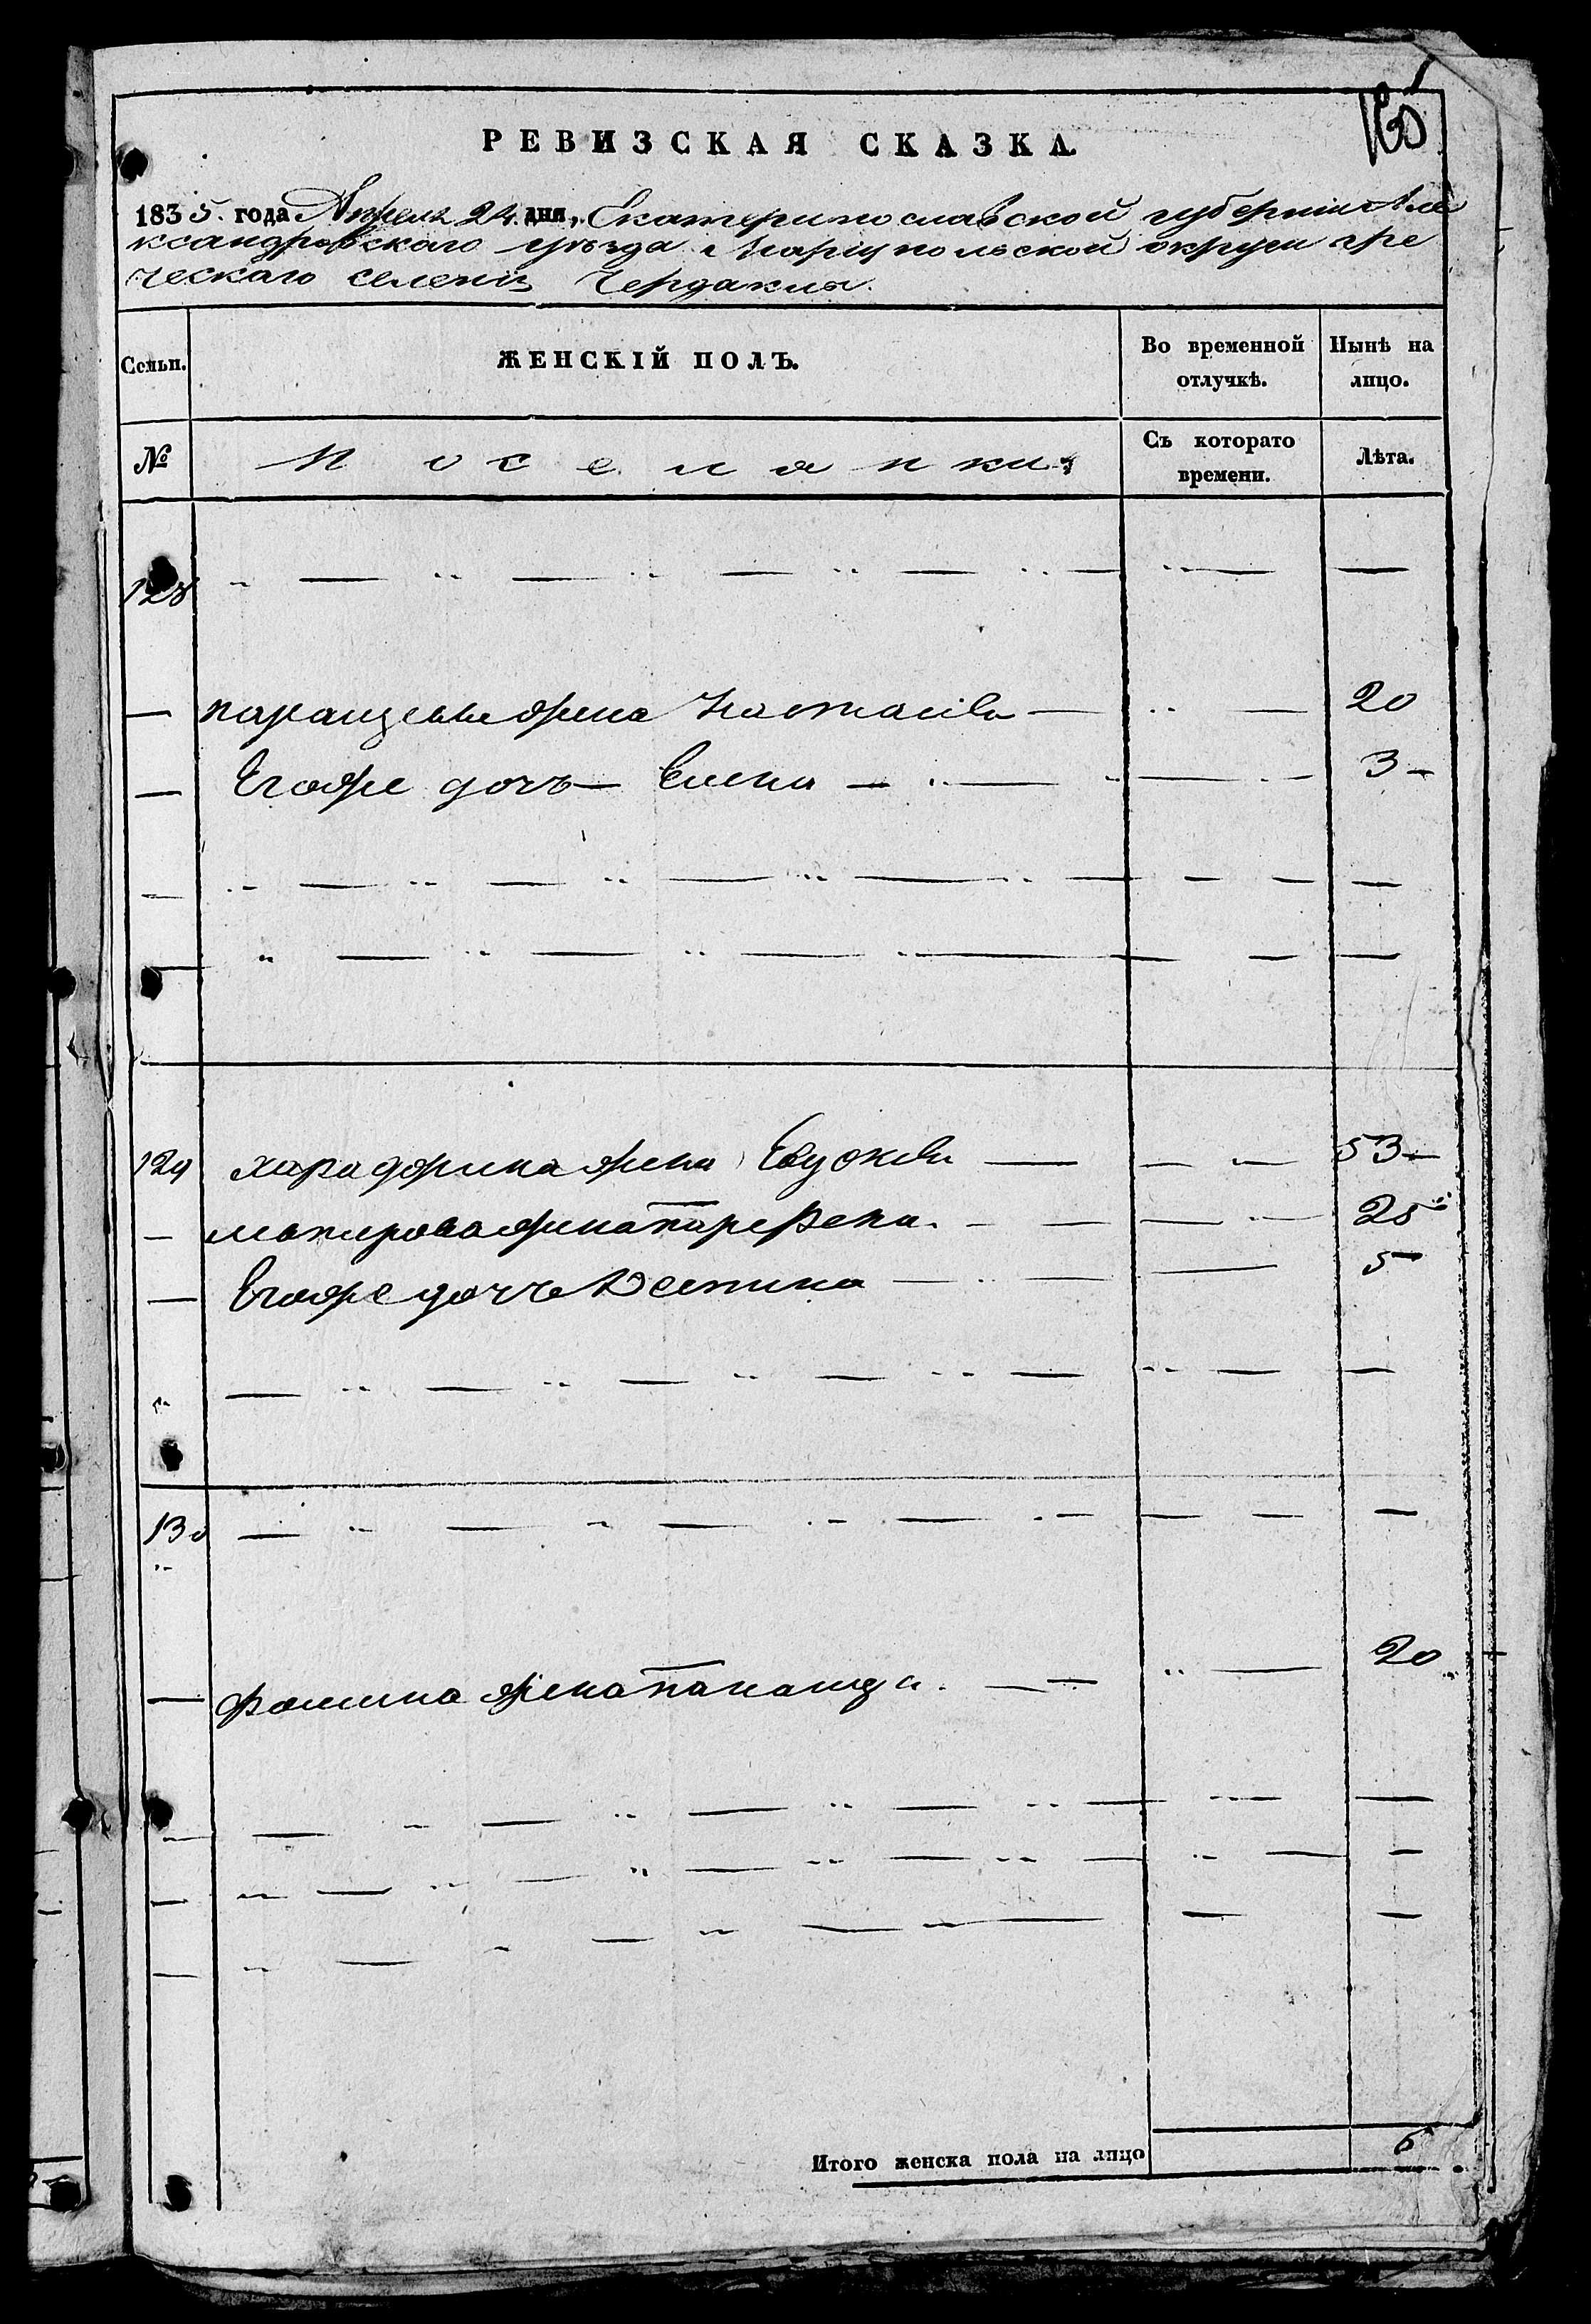 165
РЕВИЗСКАЯ СКАЗКА.
1835. года Апреля 24. дня, Екатеринославской губернiи Але
ксандровскаго уѣзда Марiупольской округи гре
ческаго селенiя Чердаклы.
Семьи. ЖЕНСКIЙ ПОЛЪ. Во временной отлучкѣ. Нынѣ на лицо.
№ Поселянки: Съ котораго времени. Лѣта.
128
жена Настасiя 20
Егоже дочь Елена 3
129 жена Евдокiя 53
жена Парфена 25
Егоже дочь 5
130
жена 20
Итого женска пола на лицо 6